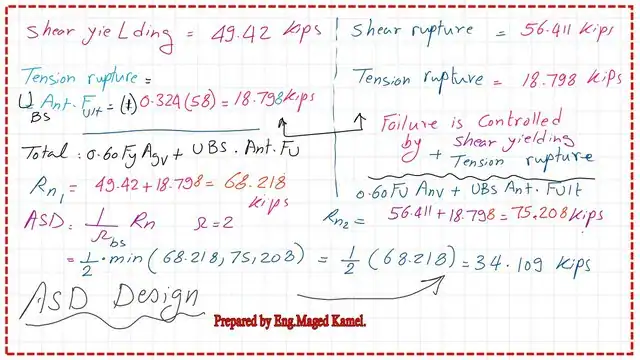 Shear yieLding = 49.42 kips
Tension rupture =
UBS Ant. Fult = (1) 0.324 (58) = 18.798 kips
Total : 0.60 Fy Agv + UBS. Ant. Fu
Rn1 = 49.42 + 18.798 = 68.218 kips
ASD: 1/Ωbs Rn Ω = 2
Shear rupture = 56.411 kips
Tension rupture = 18.798 kips
Failure is Controlled
by shear yielding
+ Tension rupture
0.60 Fu Anv + UBS Ant. Fult
Rn2 = 56.411 + 18.798 = 75.208 kips
= 1/2 . min (68.218, 75,208) = 1/2 (68.218) = 34.109 kips
ASD Design
Prepared by Eng.Maged Kamel.